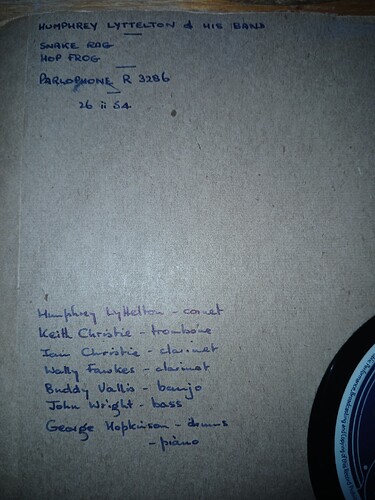 HUMPHREY LYTTELTON & HIS BAND
SNAKE RAG
HOP FROG
PARLOPHONE R 3286
26 ii 54
Humphrey Lyttelton - cornet
Keith Christie - trombone
Ian Christie - clarinet
Wally Fawkes - clarinet
Buddy Vallis - banjo
John Wright - bass
George Hopkinson - drums
- piano